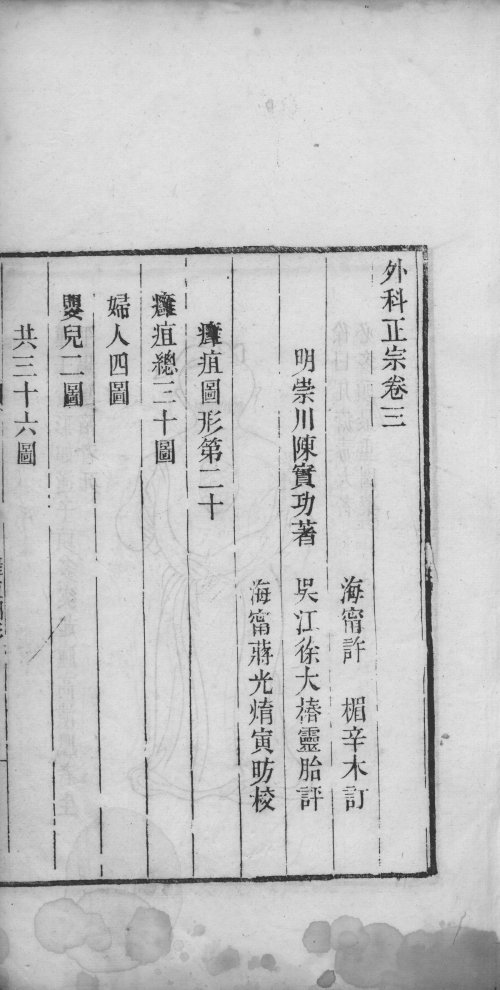 外科正宗卷三
海甯許　楣辛木訂
明崇川陳實功著　吳江徐大椿靈胎評
海甯蔣光焴寅昉校
癰疽圖形第二十
癰疽總三十圖
婦人四圖
嬰兒二圖
共三十六圖